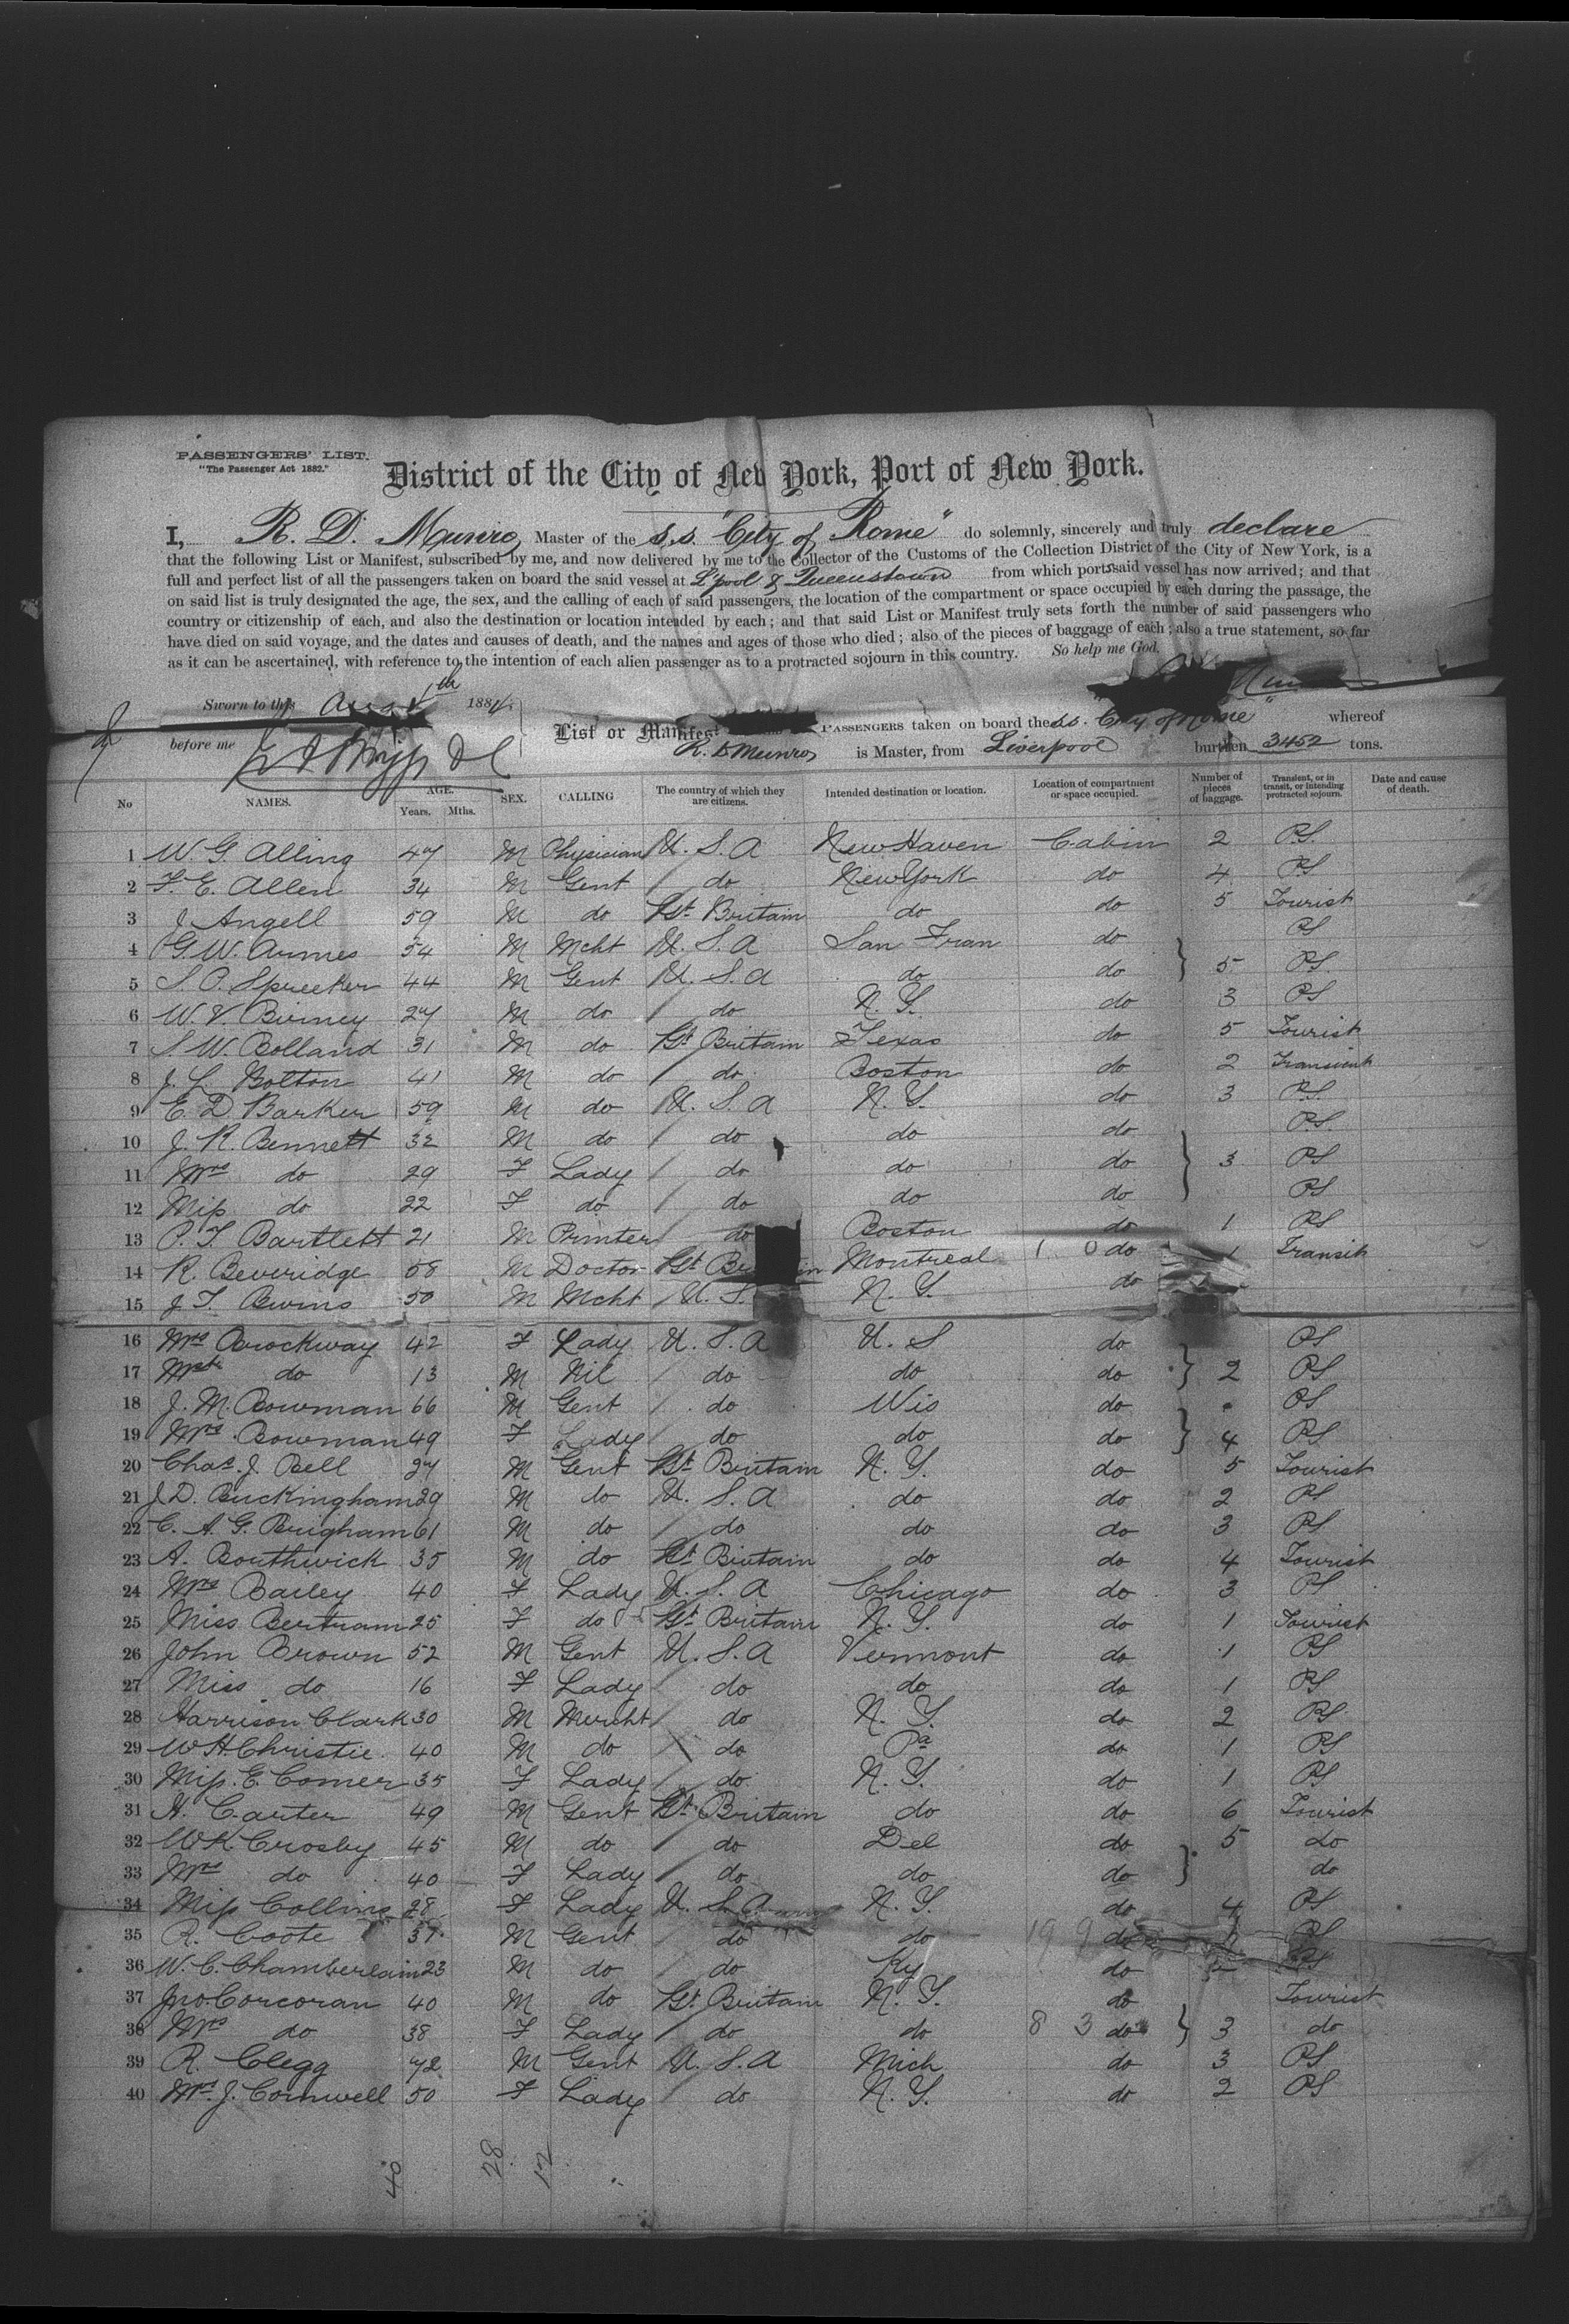 PASSENGERS' LIST.
"The Passenger Act 1882."
District of the City of New York, Port of New York.
I, R. D. Munro, Master of the s.s. "City of Rome" do solemnly, sincerely and truly declare
that the following List or Manifest, subscribed by me, and now delivered by me to the Collector of the Customs of the Collection District of the City of New York, is a
full and perfect list of all the passengers taken on board the said vessel at L'pool & Queenstown from which ports said vessel has now arrived; and that
on said list is truly designated the age, the sex, and the calling of each of said passengers, the location of the compartment or space occupied by each during the passage, the
country or citizenship of each, and also the destination or location intended by each; and that said List or Manifest truly sets forth the number of said passengers who
have died on said voyage, and the dates and causes of death, and the names and ages of those who died; also of the pieces of baggage of each; also a true statement, so far
as it can be ascertained, with reference to the intention of each alien passenger as to a protracted sojourn in this country. So help me God.
Sworn to this Aug th 1884
before me
List or Manifest PASSENGERS taken on board the s.s. "City of Rome" whereof
R. D Munro, is Master, from Liverpool burthen 3452 tons.
No NAMES. AGE. Years. Mths. SEX. CALLING The country of which they are citizens. Intended destination or location. Location of compartment or space occupied. Number of pieces of baggage. Transient, or in transit, or intending protracted sojourn. Date and cause of death.
1 W. G. Alling 47 M Physician U. S. A New Haven Cabin 2 P.S.
2 F. E. Allen 34 M Gent do New York do 4 PS
3 J Angell 59 M do Gt Britain do do 5 Tourist
4 G. W. Armes 54 M Mcht U. S. A San Fran do PS
5 S. O. Spreeker 44 M Gent U. S. A do do 5 PS.
6 W. V. Birney 27 M do do N. Y. do 3 PS
7 S. W. Bolland 31 M do Gt Britain Texas do 5 Tourist
8 J. L. Bolton 41 M do do Boston do 2 Transient
9 E. D. Barker 59 M do U. S. A N. Y. do 3 P.S.
10 J. R. Bennett 32 M do do do do P.S.
11 Mrs do 29 F Lady do do do 3 PS
12 Miss do 22 F do do do do PS
13 P. T. Bartlett 21 M Printer do Boston do 1 PS
14 R. Beveridge 58 M Doctor Gt Britain Montreal 1 0 do 1 Transit
15 J. T. Burns 50 M Mcht U. S. N. Y. do
16 Mrs Brockway 42 F Lady U. S. A U. S do PS
17 Mstr do 13 M Nil do do do 2 PS
18 J. M. Bowman 66 M Gent do Wis do PS
19 Mrs. Bowman 49 F Lady do do do 4 PS
20 Chas. J. Bell 27 M Gent Gt Britain N. Y. do 5 Tourist
21 J D. Buckingham 29 M do U. S. A do do 2 PS
22 C. A. G. Brigham 61 M do do do do 3 PS
23 A. Bouthwick 35 M do Gt Britain do do 4 Tourist
24 Mrs Bailey 40 F Lady U. S. A Chicago do 3 PS
25 Miss Bertram 25 F do Gt Britain N. Y. do 1 Tourist
26 John Brown 52 M Gent U. S. A Vermont do 1 PS
27 Miss do 16 F Lady do do do 1 PS
28 Harrison Clark 30 M Mercht do N. Y. do 2 PS
29 W H Christie. 40 M do do Pa do 1 PS
30 Miss. E. Comer 35 F Lady do N. Y. do 1 PS
31 H. Carter 49 M Gent Gt Britain do do 6 Tourist
32 W K Crosby 45 M do do Del do 5 do
33 Mrs do 40 F Lady do do do do
34 Miss Collins 28 F Lady U. S. A N. Y. do 4 PS
35 R. Coote 37 M Gent do do 19 9 do PS
36 W. C. Chamberlain 23 M do do Ky do PS
37 Jno. Corcoran 40 M do Gt Britain N. Y. do Tourist
38 Mrs do 38 F Lady do do 8 3 do 3 do
39 R. Clegg 42 M Gent U. S. A Mich do 3 PS
40 Mrs. J. Cornwell 50 F Lady do N. Y. do 2 PS
40 28 12